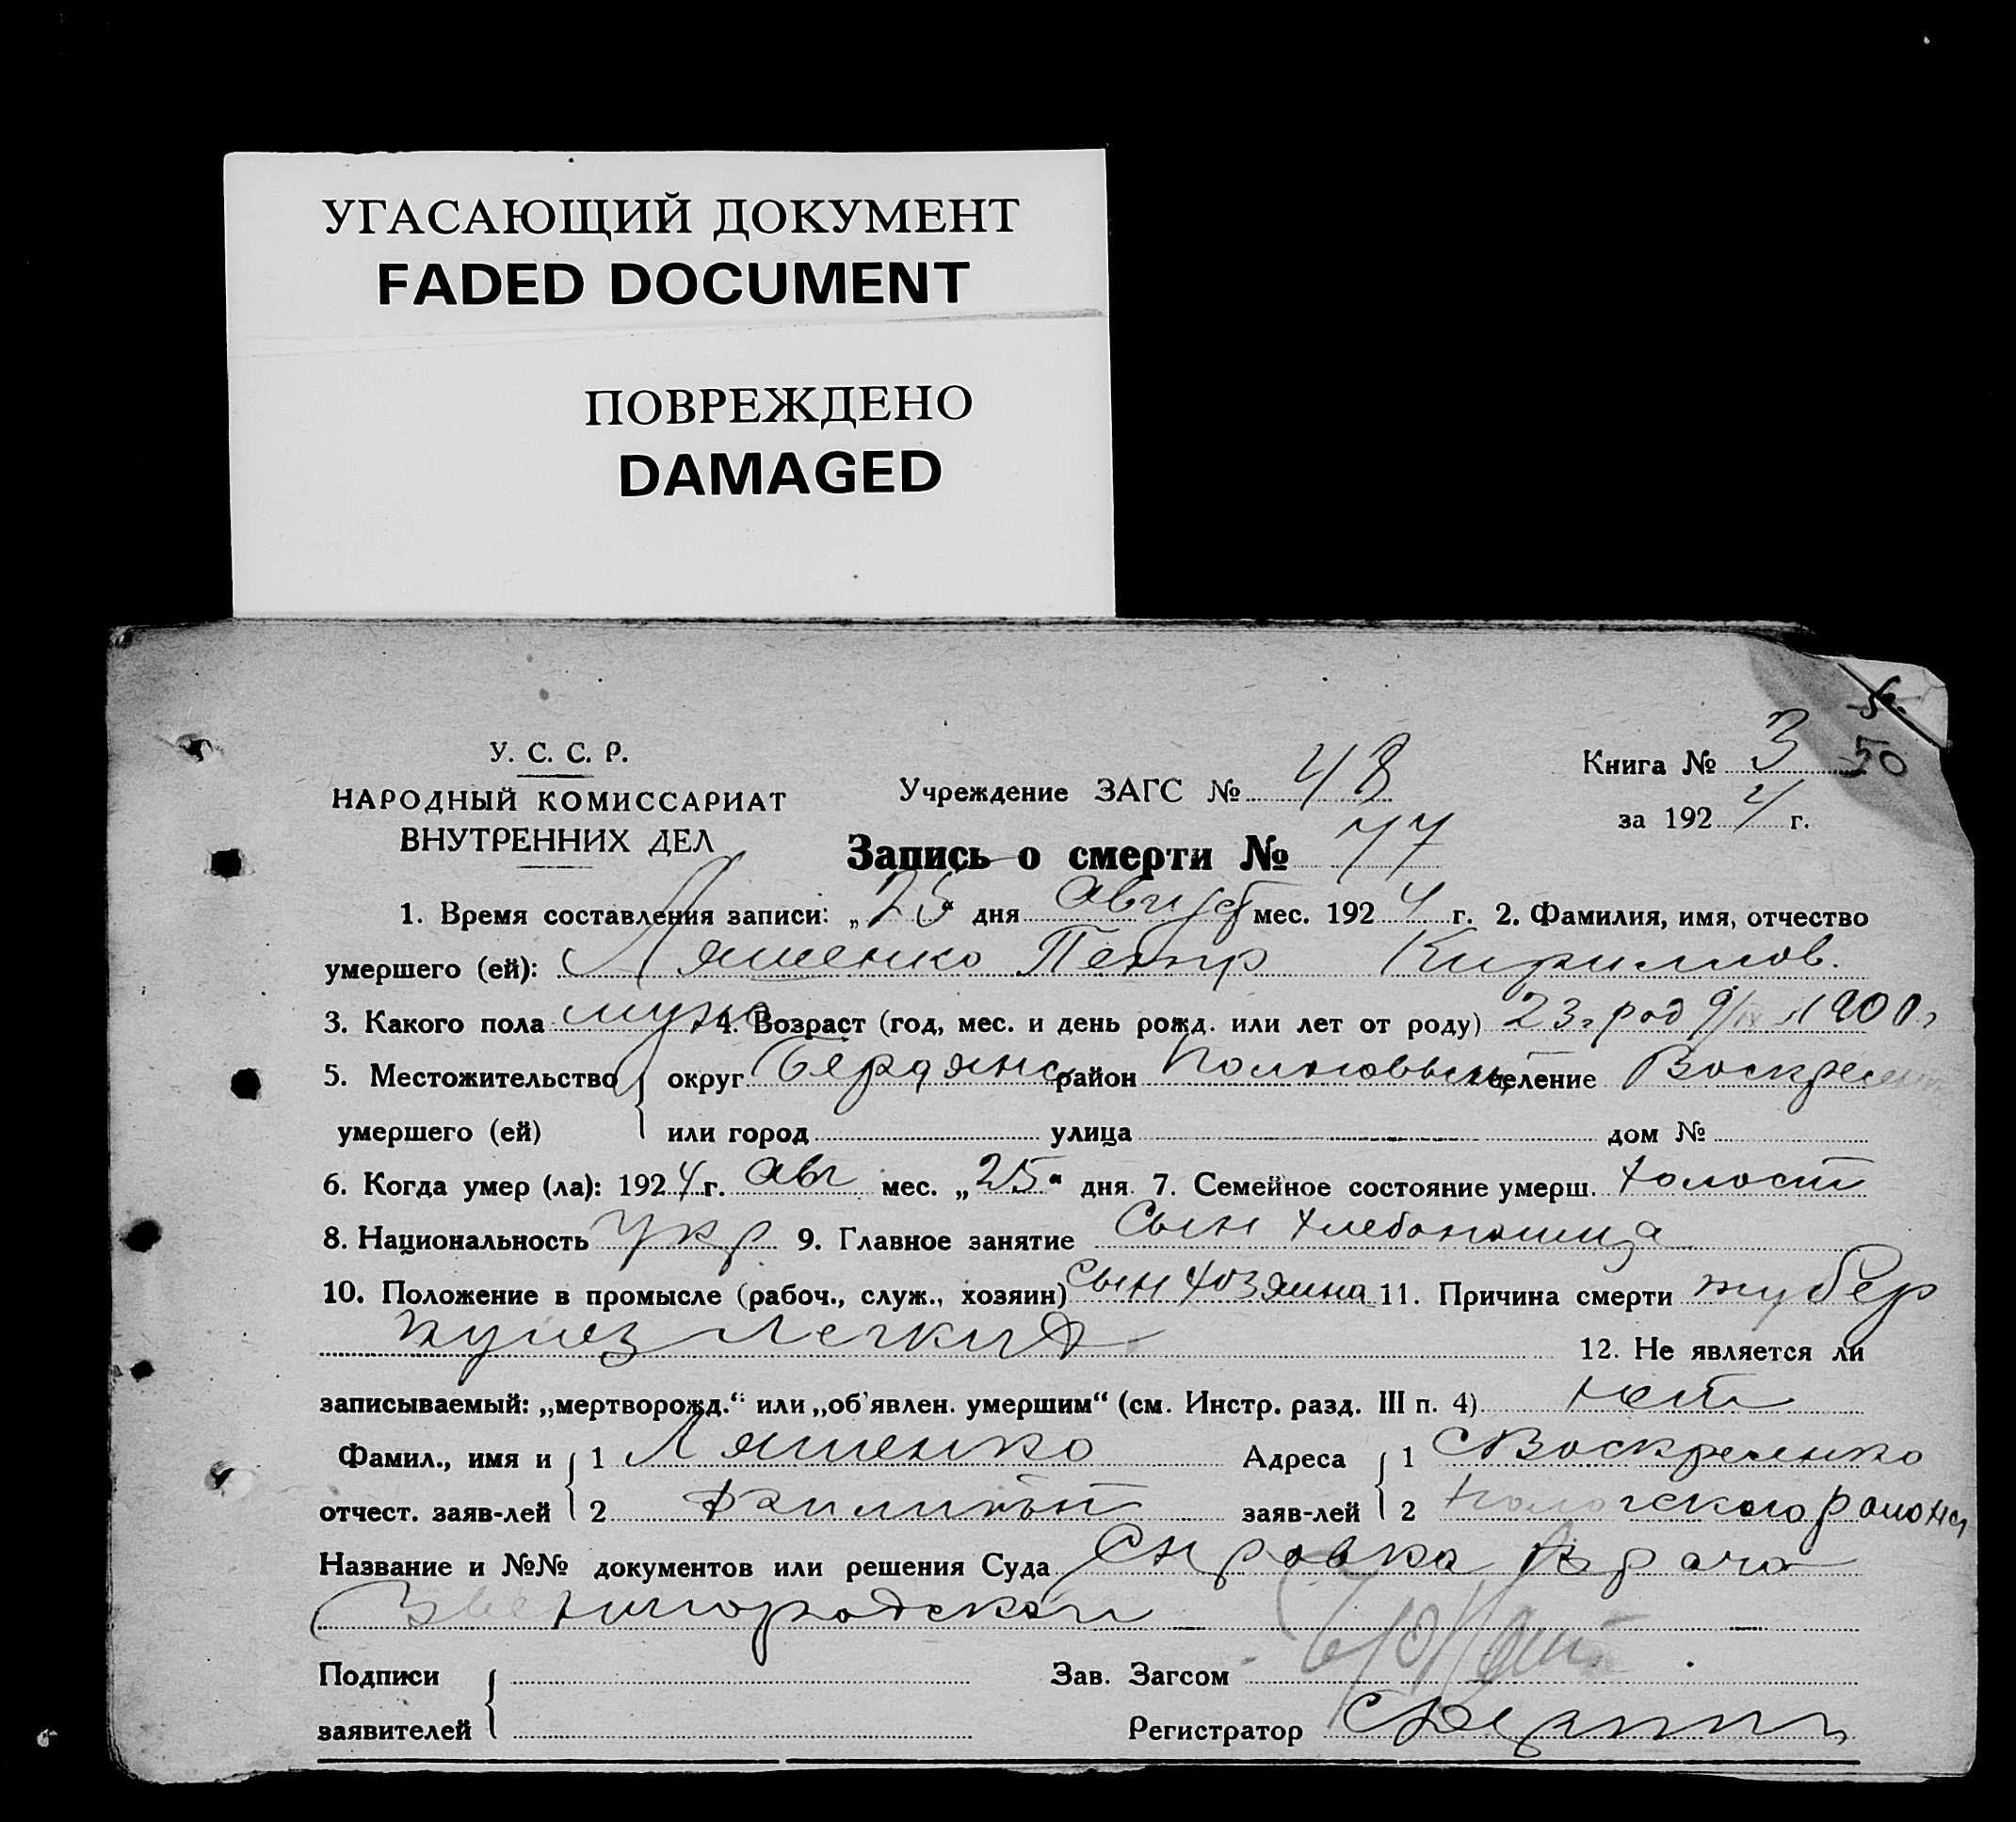 УГАСАЮЩИЙ ДОКУМЕНТ
FADED DOCUMENT
ПОВРЕЖДЕНО
DAMAGED
50
У. С. С. Р.
НАРОДНЫЙ КОМИССАРИАТ
ВНУТРЕННИХ ДЕЛ
Учреждение ЗАГС № 48
Книга № 3
за 1924 г.
Запись о смерти № 77
1. Время составления записи: „25“ дня Август мес. 1924 г. 2. Фамилия, имя, отчество
умершего (ей): Ляшенко Петр Кириллов.
3. Какого пола муж 4. Возраст (год, мес. и день рожд. или лет от роду) 23 г род 9/IX 1900 г
5. Местожительство округ Бердянс район селение Воскресен
умершего (ей) или город улица дом №
6. Когда умер (ла): 1924 г. Авг мес. „25“ дня 7. Семейное состояние умерш. холост
8. Национальность Укр 9. Главное занятие Сын хлебопашца
10. Положение в промысле (рабоч., служ., хозяин) сын хозяина 11. Причина смерти тубер
кулез легких
12. Не является ли
записываемый: „мертворожд.“ или „об'явлен. умершим“ (см. Инстр. разд. III п. 4) нет
Фамил., имя и 1 Ляшенко Адреса 1 С Воскресенко
отчест. заяв-лей 2 заяв-лей 2 района
Название и №№ документов или решения Суда Справка Врача
Звенигородской
Подписи Зав. Загсом
заявителей Регистратор